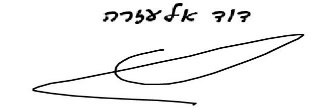 דוד אלעזרה